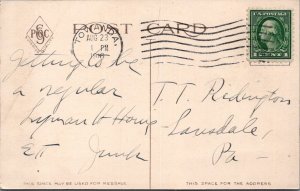 POST CARD
TOWANDA, PA.
AUG 23
1 PM
Getting to be
a regular
Lyman H. Howe
E.T. Junk
T. T. Ridington
Lansdale,
Pa -
THIS SPACE MAY BE USED FOR MESSAGE
THIS SPACE FOR THE ADDRESS